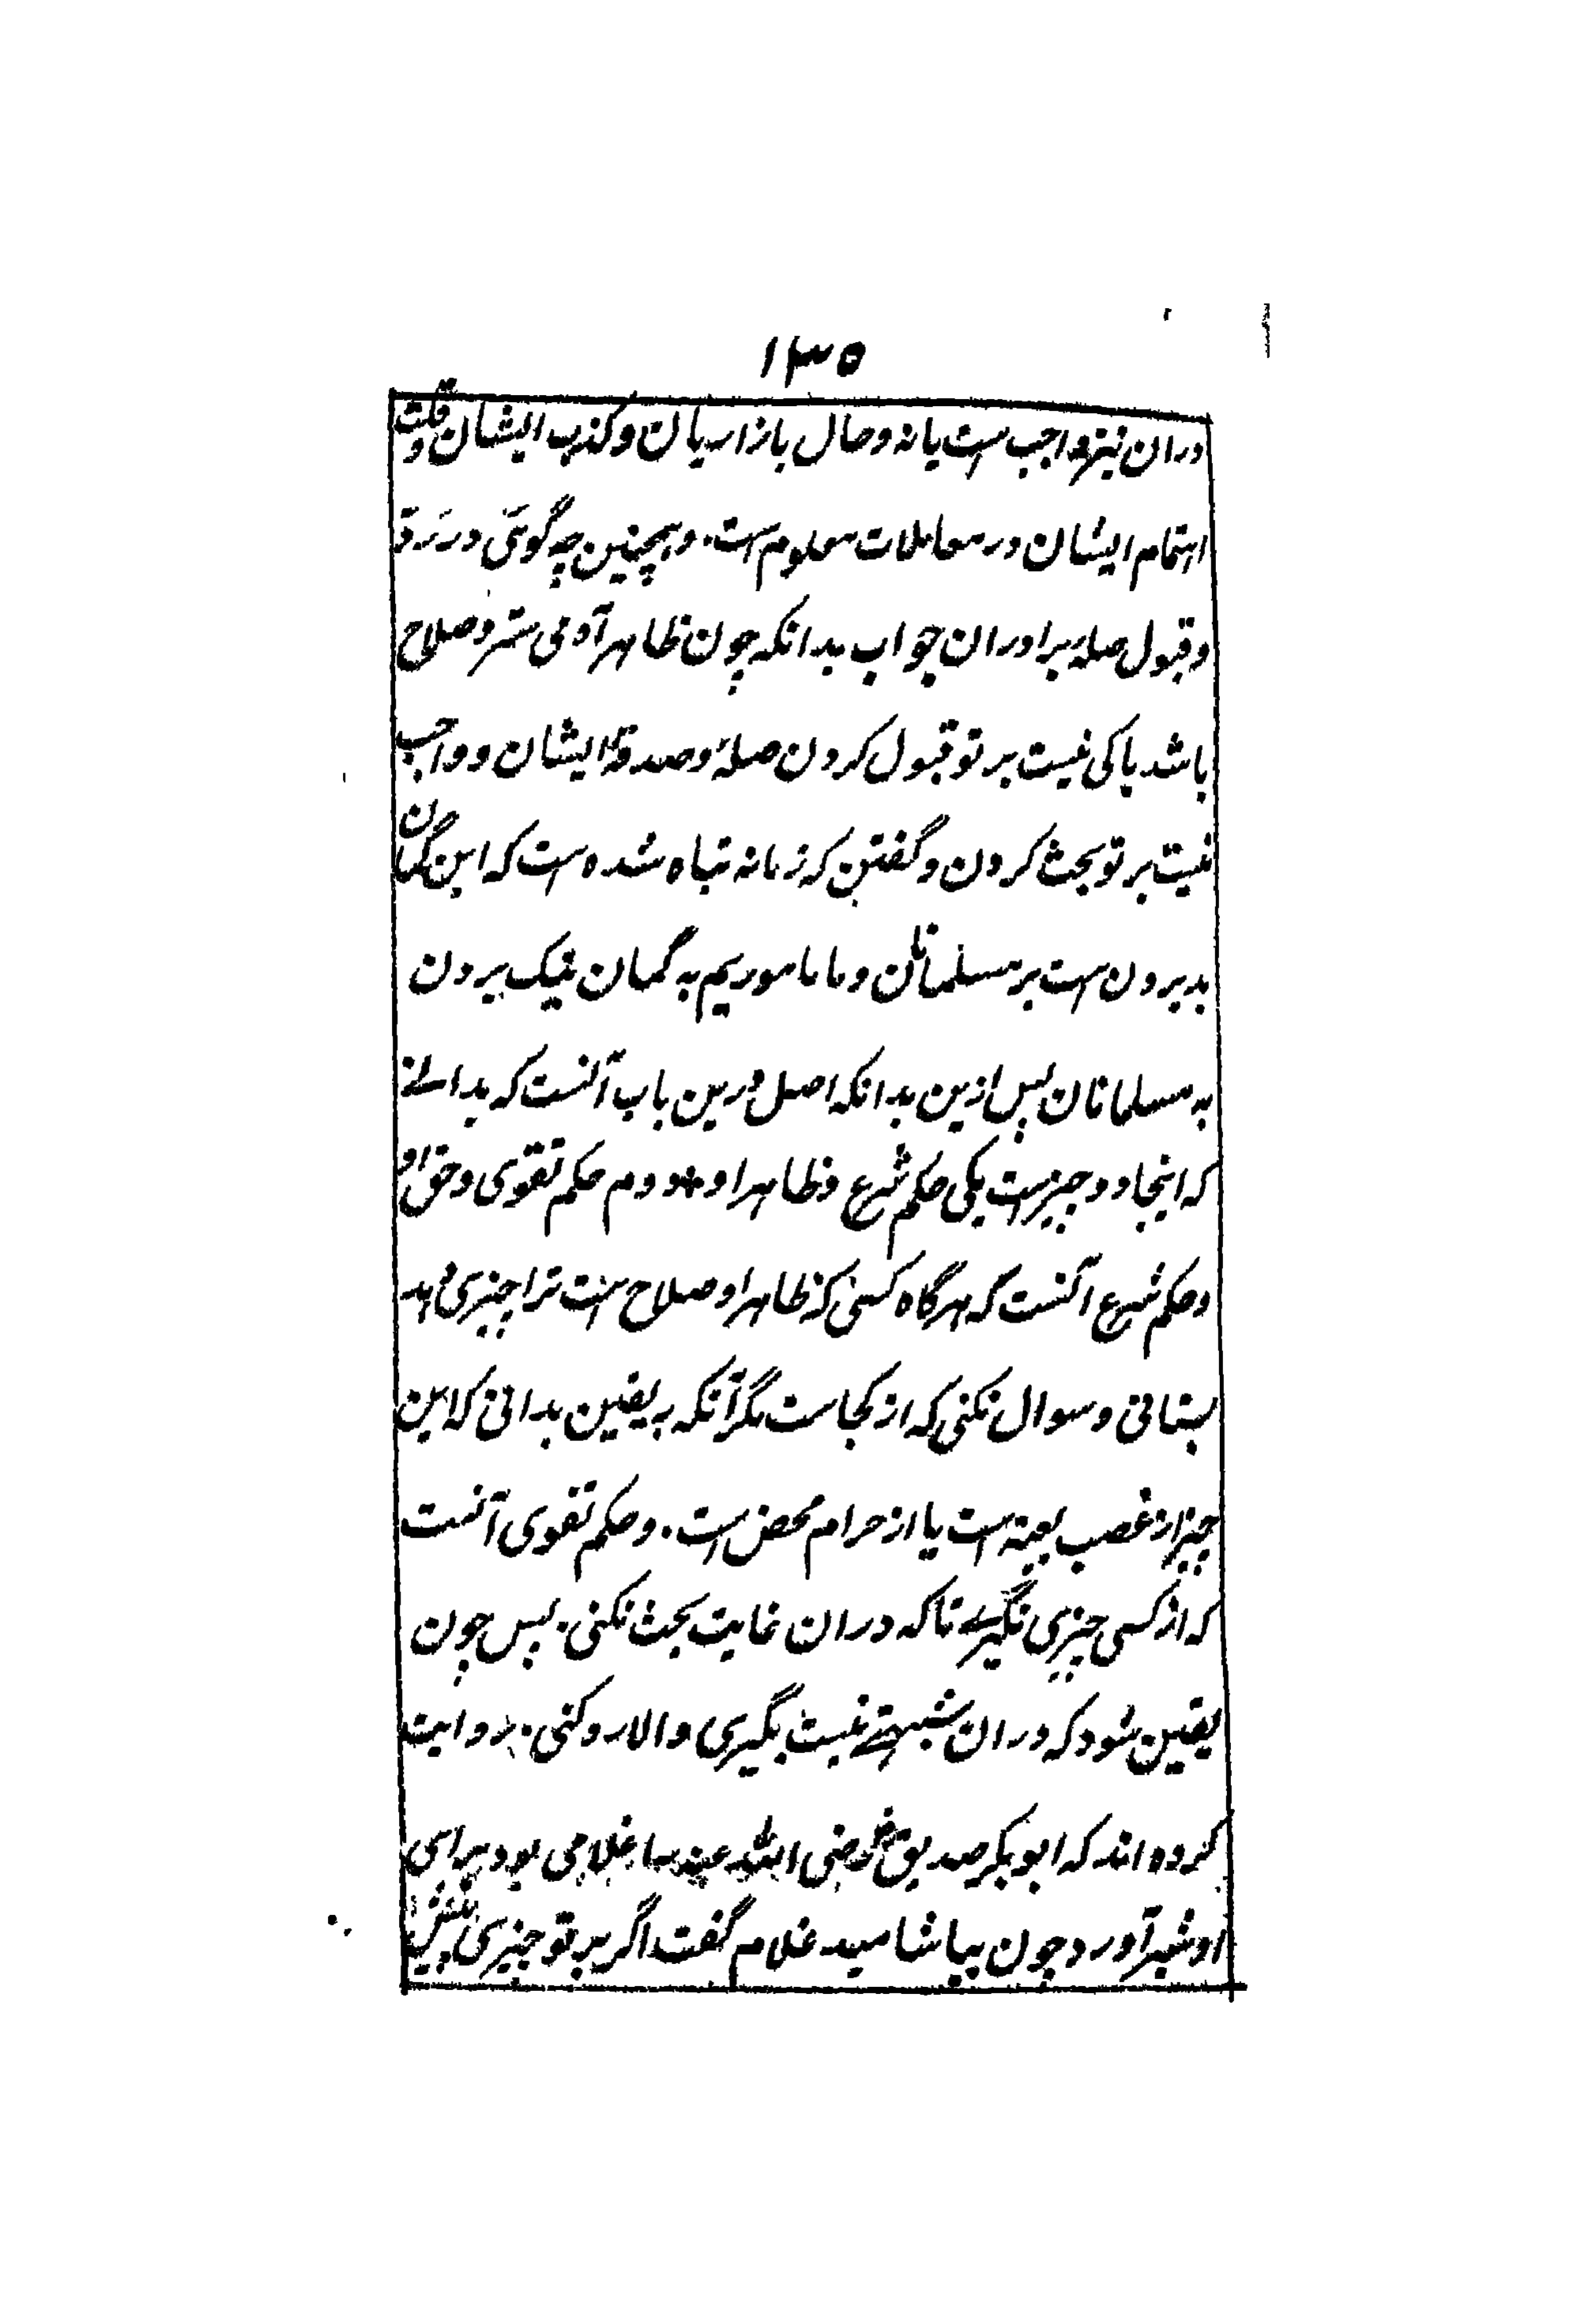 ۱۳۵
دران نیز واجب است یا نه و حال بازاریان و کذب ایشان و قلت
اہتمام ایشان در معاملات معلوم است. و ہمچنین چہ گوئی در رَدّ
و قبول صلہ برادران جواب بدانکہ چون ظاہر آدمی ستر و صلاح
باشد باکی نیست بر تو قبول کردن صلۂ و صدقۂ ایشان و واجب
نیست بر تو بحث کردن و گفتن کہ زمانہ تباہ شدہ است کہ این گمان
بد بردن است بر مسلمانان و ما ماموریم بہ گمان نیک بردن
بہ مسلمانان پس ازین بدانکہ اصل درین باب آنست کہ بدانے
کہ اینجا دو چیز است یکی حکم شرع و ظاہر او * و دوم حکم تقوی و حق او
و حکم شرع آنست کہ ہرگاہ کسی کہ ظاہر او صلاح است ترا چیزی دہد
بستانی و سوال نکنی کہ از کجاست مگر آنکہ بہ یقین بدانی کہ این
چیز از غصب بعینہ است یا از حرام محض است. و حکم تقوی آنست
کہ از کسی چیزی نگیرے تا کہ دران غایت بحث نکنی. پس چون
یقین شود کہ دران شبہتے نیست بگیری و الا رد کنی. روایت
کردہ اند کہ ابوبکر صدیق رضی اللہ عنہ را غلامی بود برای
او شیر آورد چون بیاشامید غلام گفت اگر بر تو چیزی پیش